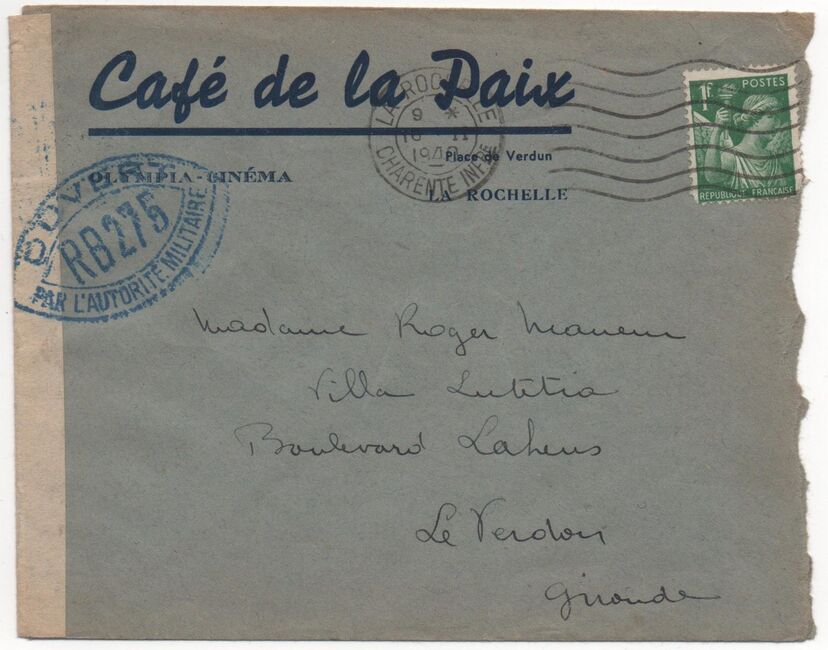 Café de la Paix
Place de Verdun
OLYMPIA-CINÉMA
LA ROCHELLE
LA ROCHELLE
9 *
10 II
1940
CHARENTE INFRE
1F
POSTES
RÉPUBLIQUE FRANÇAISE
OUVERT
RB275
PAR L'AUTORITÉ MILITAIRE
Madame Roger
Villa Lutétia
Boulevard Lahens
Le Verdon
Gironde